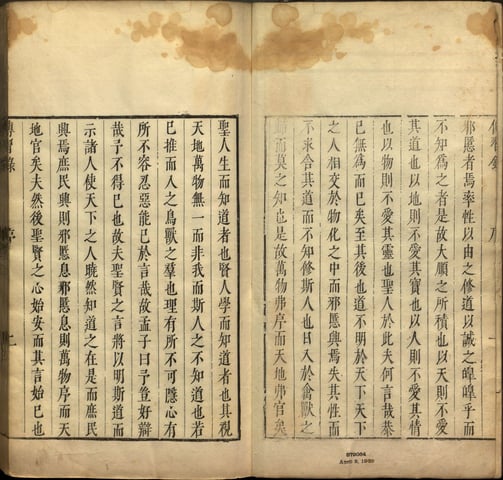 邪慝者焉率性以由之修道以誠之皥皥乎而
不知為之者是故大順之所積也以天則不愛
其道也以地則不愛其寶也以人則不愛其情
也以物則不愛其靈也聖人於此夫何言哉恭
已無為而已矣至其後也道不明於天下天下
之人相交於物化之中而邪慝興焉失其性而
不求合其道而不知修斯人也日入於禽獸之
歸而莫之知也是故萬物弗序而天地弗官矣
聖人生而知道者也賢人學而知道者也其視
天地萬物無一而非我而斯人之不知道也若
已推而入之鳥獸之羣也理有所不可隱心有
所不容忍惡能已於言哉故孟子曰予豈好辯
哉予不得已也故夫聖賢之言將以明斯道而
示諸人使天下之人曉然知道之在是而庶民
興焉庶民興則邪慝息邪慝息則萬物序而天
地官矣夫然後聖賢之心始安而其言始已也
傳習錄 序 二
April